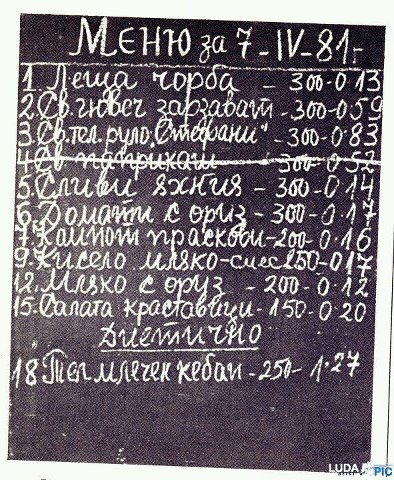 Меню за 7-IV-81г
1 Леща чорба - 300-0 13
2. Св. гювеч зарзават - 300-0 59
3 Св. тел. руло "Стефани" - 300-0.83
4 Св паприкаш - 300-0.52
5. Сливи яхния - 300-0 14
6 Домати с ориз - 300-0.17
7. Компот праскови-200-0.16
9. Кисело мляко-смес 250-017
12. Мляко с ориз - 200-0.12
15. Салата краставици - 150-0 20
Диетично
18 Тел млечен кебап - 250- 1.27
LUDA
PIC